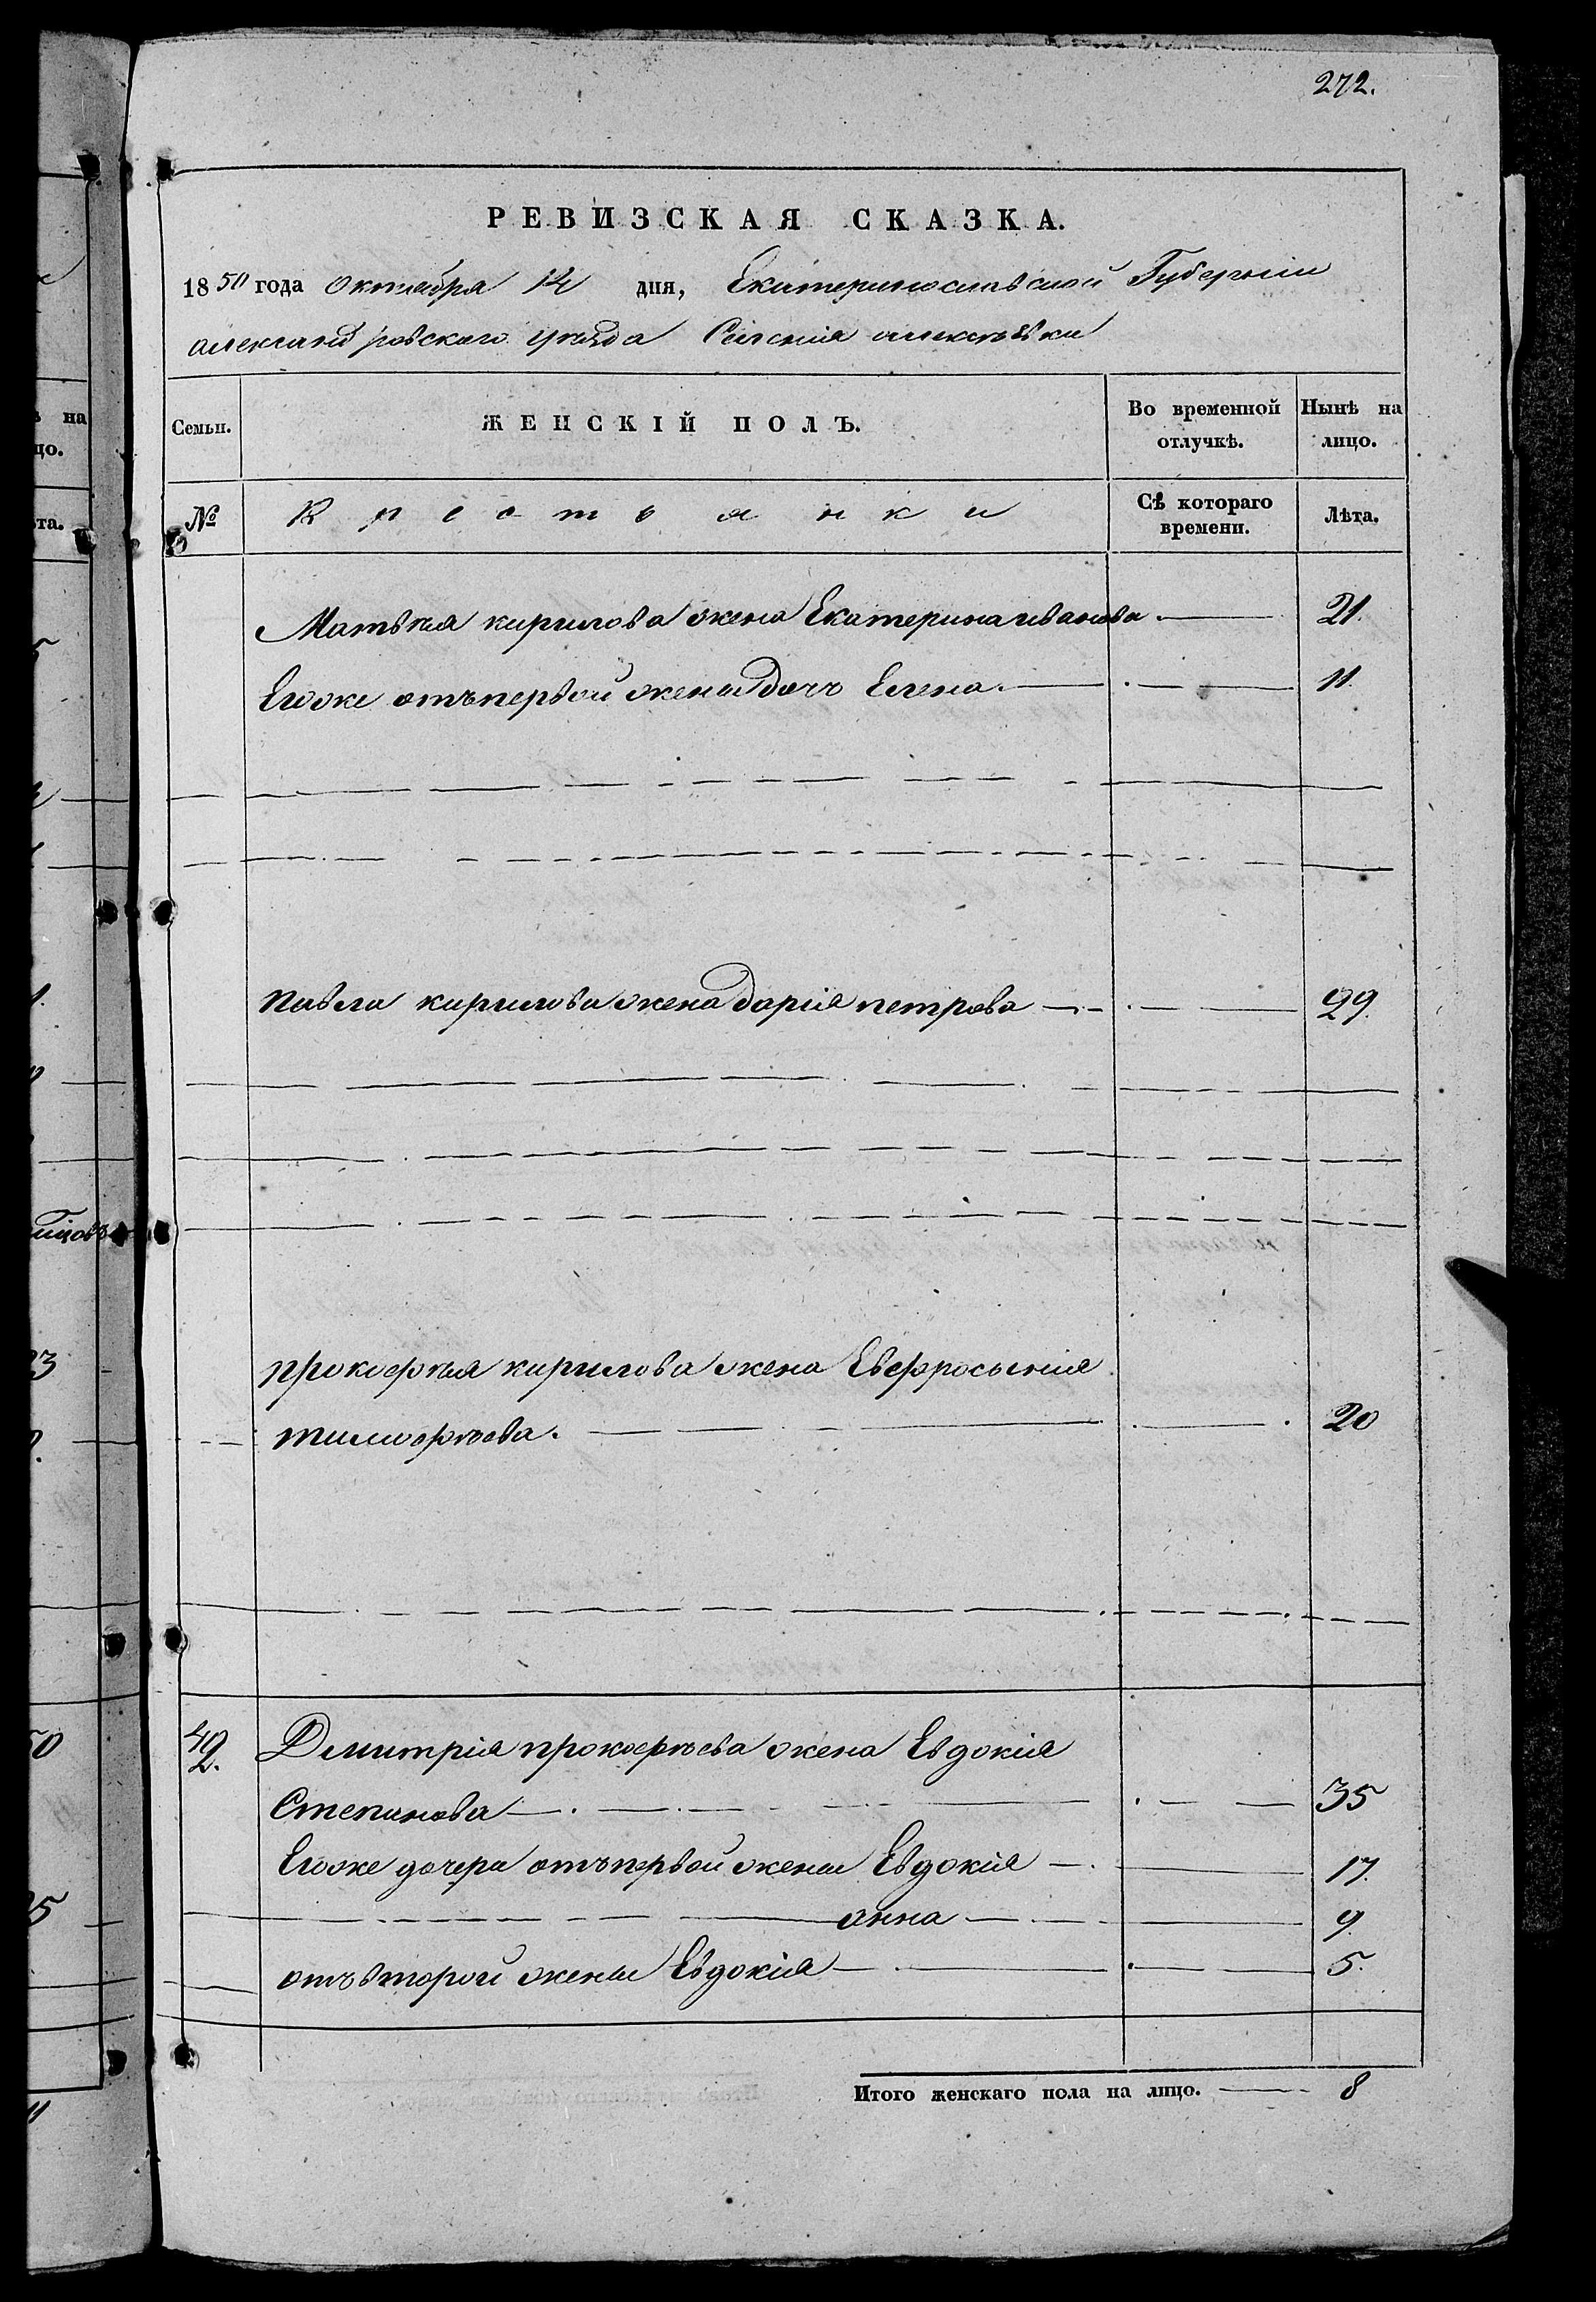 272.
РЕВИЗСКАЯ СКАЗКА.
1850 года октября 12 дня, Екатеринославской Губерніи
александровскаго уѣзда Селенія алексѣевки
Семьи. ЖЕНСКІЙ ПОЛЪ. Во временной отлучкѣ. Нынѣ на лицо.
№ Крестьянки Съ котораго времени. Лѣта.
Матвѣя кирилова жена Екатерина иванова 21.
Егоже отъ первой жены дочь Елена. 11.
павла кирилова жена дарія петрова 29.
прокофѣя кирилова жена Евфросынія
тимофѣева. 20
42. Дмитрія прокофѣева жена Евдокія
Степанова 35
Егоже дочери отъ первой жены Евдокія 17.
анна 9.
отъ второй жены Евдокія 5.
Итого женскаго пола на лицо. 8